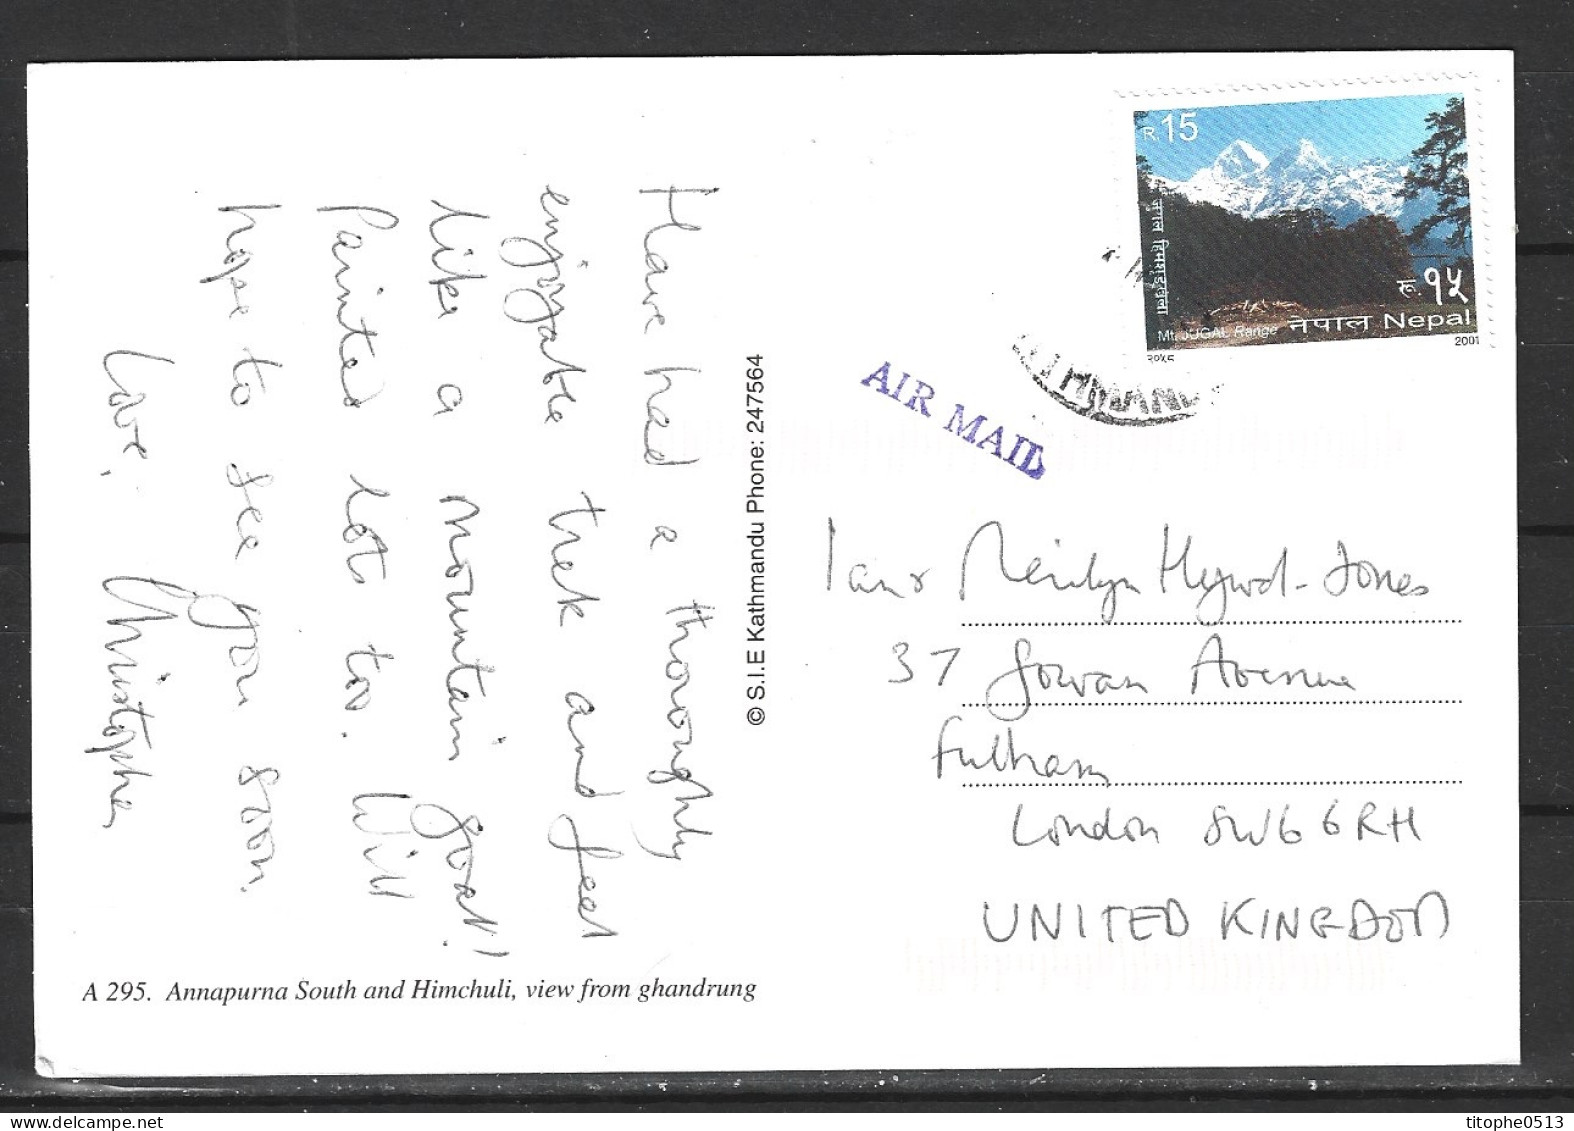 Have had a thoroughly
enjoyable trek and feel
like a mountain goat!
Painted lots too. Will
hope to see you soon.
Love,
Christopher
© S.I.E Kathmandu Phone: 247564
A 295. Annapurna South and Himchuli, view from ghandrung
R.15
जुगल हिमशृङ्खला
रू. १५
Mt. JUGAL Range
नेपाल Nepal
2001
AIR MAIL
Ian & Merilyn Heywd-Jones
37 Gowan Avenue
Fulham
London SW6 6RH
UNITED KINGDOM
titophe0513